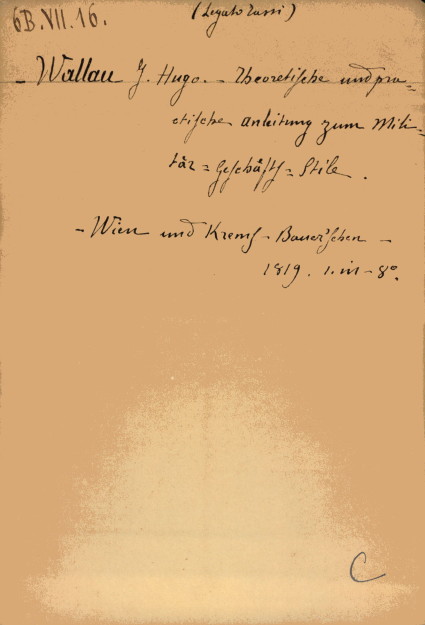 (Legato Zussi)
6B.VII.16.
- Wallau J. Hugo. - Theoretische und pra=
ctische anleitung zum Mili=
tär=Geschäfts=Stile.
- Wien und Krems - Bauer'schen -
1819. 1. in - 8º.
C